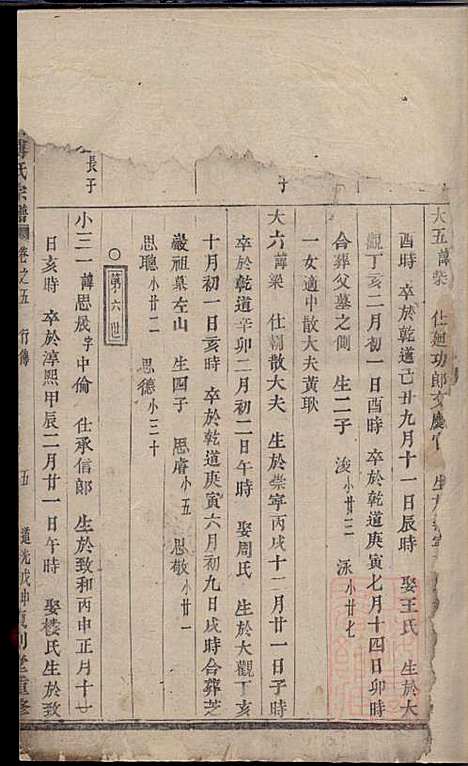 大五諱榮 仕迪功郎
酉時 卒於乾道己丑九月十一日辰時 娶王氏 生於大
觀丁亥二月初一日酉時 卒於乾道庚寅七月十四日卯時
合葬父墓之側 生二子 浚小廿三 泳小廿七
一女適中散大夫黃耿
大六諱梁 仕朝散大夫 生於崇寧丙戌十二月廿一日子時
卒於乾道辛卯二月初二日午時 娶周氏 生於大觀丁亥
十月初一日亥時 卒於乾道庚寅六月初九日戌時合葬芝
巖祖墓左山 生四子 思睿小五 思敬小廿一
思聰小廿二 思德小三十
○第六世
長子
小三一諱思 字中倫 仕承信郎 生於致和丙申正月十一
日亥時 卒於淳熙甲辰二月廿一日午時 娶樓氏生於致
氏宗譜 卷之五 行傳 五 道光戊申 重修